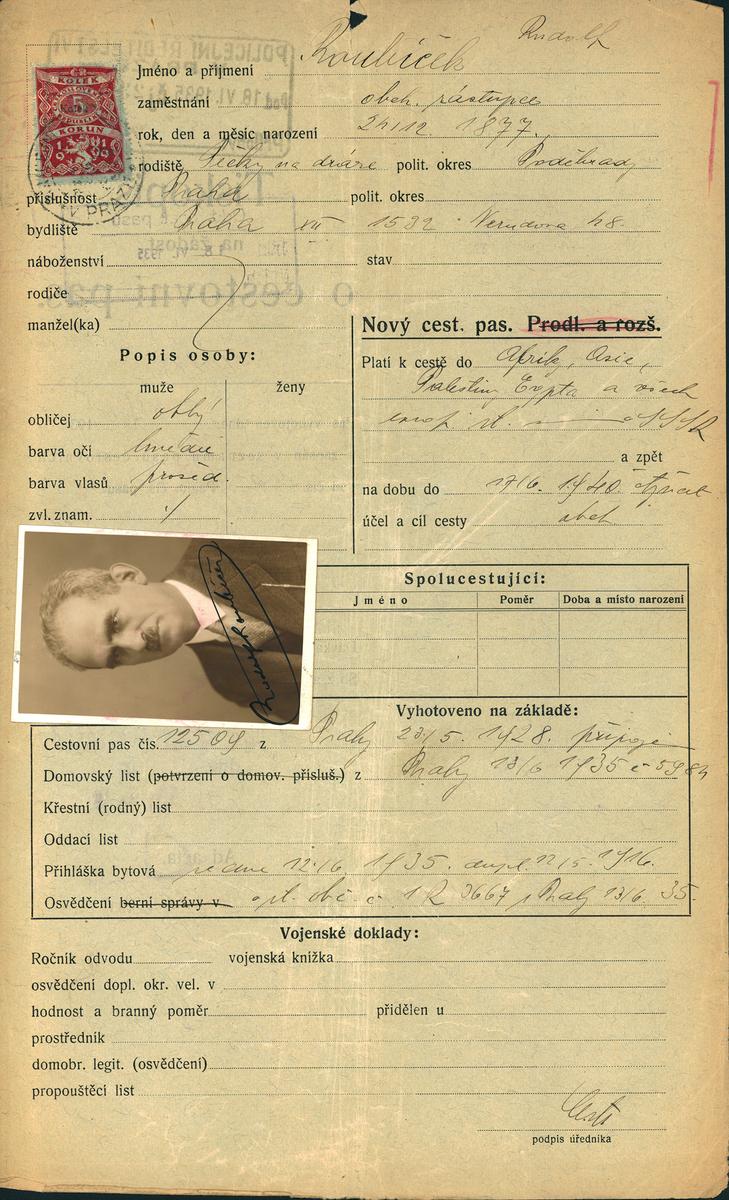 Rudolf
Jméno a příjmení Roubíček
zaměstnání obch. zástupce
rok, den a měsíc narození 24/12 1877.
rodiště na dráze polit. okres Poděbrady
příslušnost Praha polit. okres
bydliště Praha VII 1532 Nerudova 48.
náboženství stav
rodiče
manžel(ka)
ČR
KOLEK
5
KORUN
V PRAZE
POLICEJNÍ ŘEDITELSTVÍ
18. VI. 1935
na žádost
18. VI. 1935
o cestovní pas.
Popis osoby:
muže ženy
obličej oblý
barva očí hnědé
barva vlasů prošed.
zvl. znam. ./.
Nový cest. pas. Prodl. a rozš.
Platí k cestě do Afriky, Asie,
Palestiny, Egypta a všech
evrop. st.
a zpět
na dobu do 17/6. 1940.
účel a cíl cesty obch
Rudolf Roubíček
Spolucestující:
Jméno Poměr Doba a místo narození
Vyhotoveno na základě:
Cestovní pas čís. 12509 z Prahy 23/5. 1928. připoje
Domovský list (potvrzení o domov. přísluš.) z Prahy 13/6 1935 č 5984
Křestní (rodný) list
Oddací list
Přihláška bytová ze dne 12/6 1935. dupl. 12/5. 1916.
Osvědčení berní správy v č 1 R 3667 z Prahy 13/6. 35.
Vojenské doklady:
Ročník odvodu vojenská knížka
osvědčení dopl. okr. vel. v
hodnost a branný poměr přidělen u
prostředník
domobr. legit. (osvědčení)
propouštěcí list
podpis úředníka